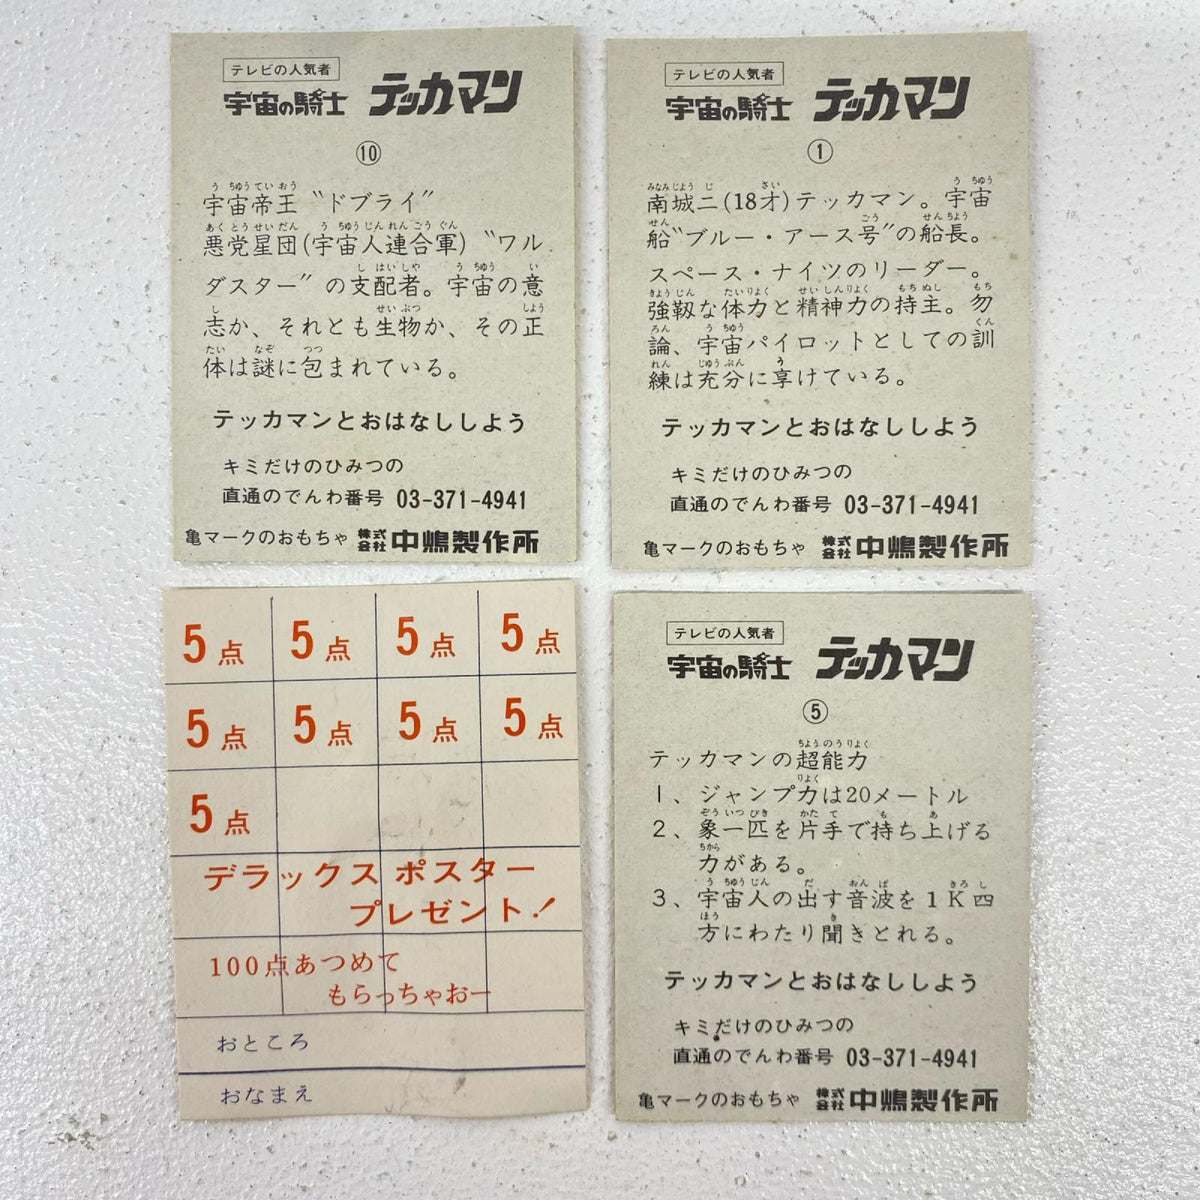 テレビの人気者
宇宙の騎士 テッカマン
⑩
宇宙帝王 “ドブライ”
悪党星団(宇宙人連合軍) “ワル
ダスター” の支配者。宇宙の意
志か、それとも生物か、その正
体は謎に包まれている。
テッカマンとおはなししよう
キミだけのひみつの
直通のでんわ番号 03-371-4941
亀マークのおもちゃ 株式会社 中嶋製作所
テレビの人気者
宇宙の騎士 テッカマン
①
南城二(18才)テッカマン。宇宙
船“ブルー・アース号”の船長。
スペース・ナイツのリーダー。
強靱な体力と精神力の持主。勿
論、宇宙パイロットとしての訓
練は充分に享けている。
テッカマンとおはなししよう
キミだけのひみつの
直通のでんわ番号 03-371-4941
亀マークのおもちゃ 株式会社 中嶋製作所
5点 5点 5点 5点
5点 5点 5点 5点
5点
デラックス ポスター
プレゼント!
100点あつめて
もらっちゃおー
おところ
おなまえ
テレビの人気者
宇宙の騎士 テッカマン
⑤
テッカマンの超能力
1、ジャンプ力は20メートル
2、象一匹を片手で持ち上げる
力がある。
3、宇宙人の出す音波を1K四
方にわたり聞きとれる。
テッカマンとおはなししよう
キミだけのひみつの
直通のでんわ番号 03-371-4941
亀マークのおもちゃ 株式会社 中嶋製作所